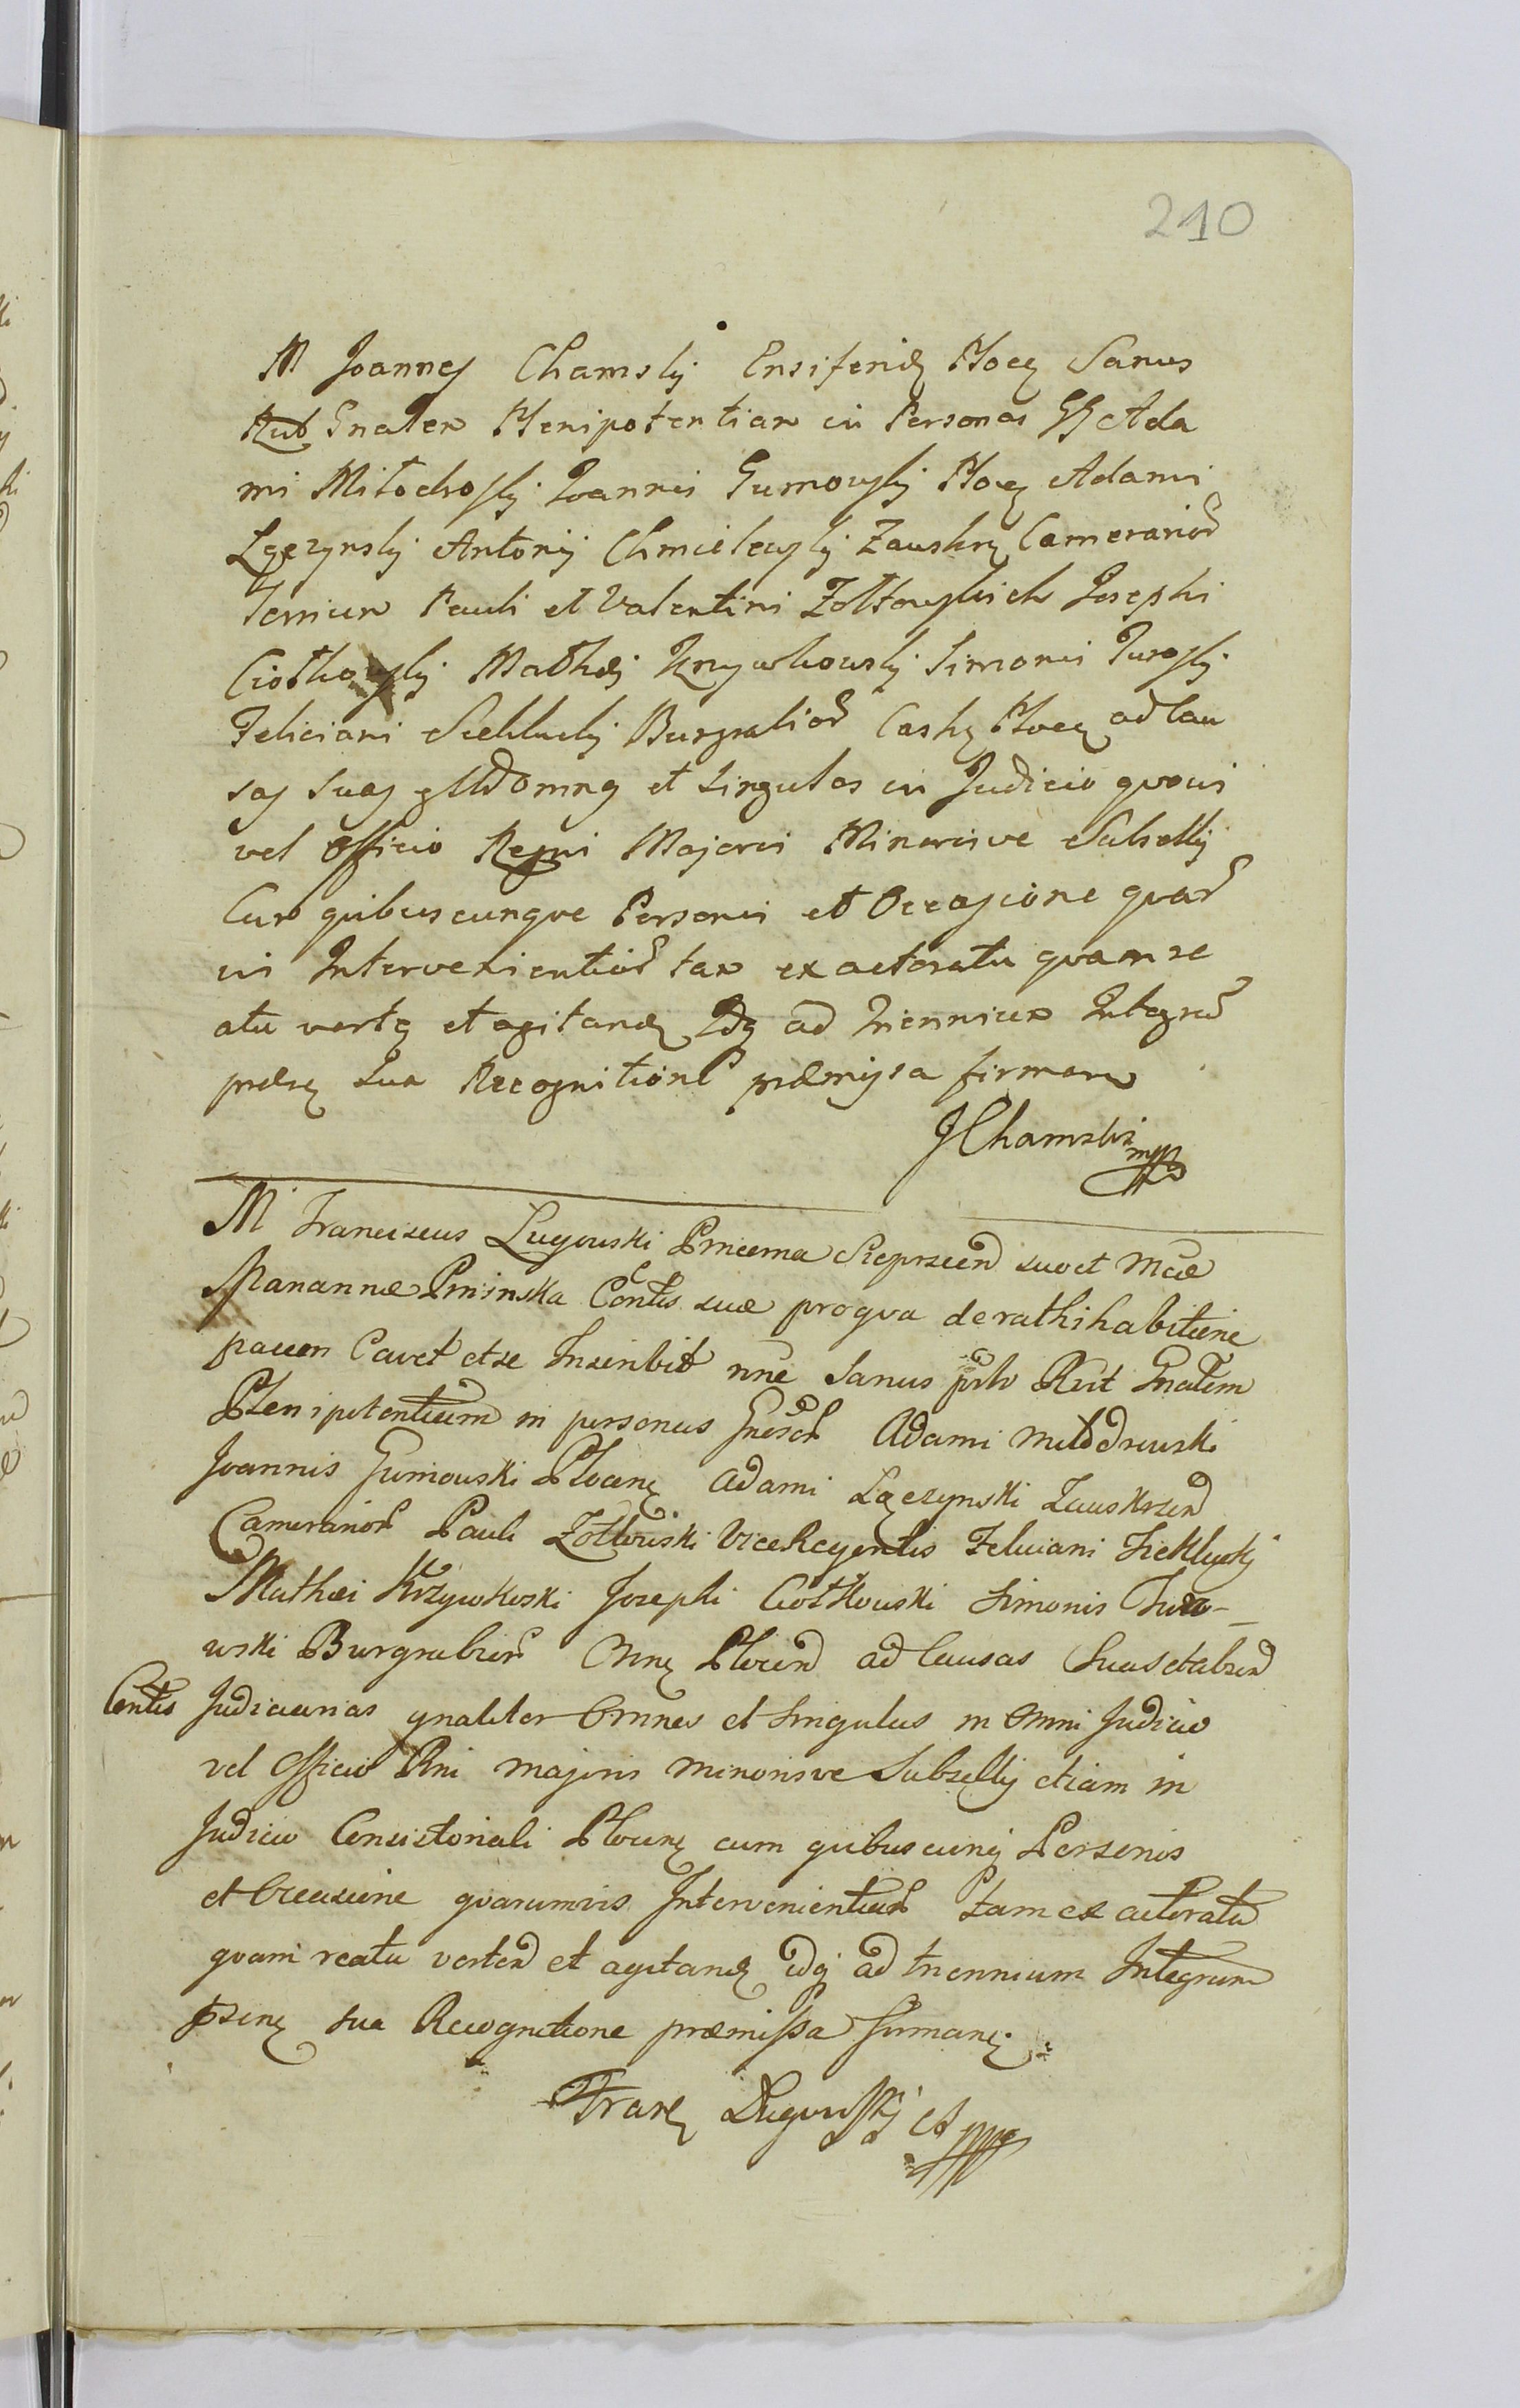 210
M Joannes Chamsky Ensiferid Ploc Sanus
Rub Gnalem Plenipotentiam in Personas GG Ada
mi Młłochosky Joannis Gumowsky Ploc Adami
Łęczynsky Antonij Chmielewsky Zauskrz Camerarior
Terrium Pauli et Valentini Żołtowskich Josephi
Ciotkowsky Mathæj Krzywkowsky Simonis Turosky
Feliciani Siekluckj Burgrabior Cash Ploc ad Cau
sas suas omng et singulas in Judicio quovis
vel Officio Regni Majoris Minorisve Subsellij
Cum quibuscunque Personis et Occasione quar
vis Intervenientiur tam ex actoratu quam re
atu verte et agitand Idq ad Triennium Integrum
præse sua Recognitione præmissa firman
JChamski mpp
M Franciscus Ługowski Pincerna Sieprscen suo et Mcæ
Mariannæ Pninska Contis suæ pro qua de rathihabitione
pacem Cavet et se Inscribit nne Sanus Rcit Gnalem
Plenipotentium in personas Gnosor Adami Młodzeuski
Joannis Gumowski Plocens Adami Łączynski Zauskrzen
Camerarior Pauli Żołtowski ViceRegentis Feliciani Sieklucky
Mathæi Krzywkoski Josephi Ciotkouski Simonis Turo-
wski Burgrabior Plocen ad Causas Suas et
Contis Judiciarias gnaliter Omnes et Singulas in Omni Judicio
vel Officio Rni majoris minorisve Subsellij etiam in
Judicio Consistoriali Plocens cum quibuscunq Personis
et Occasione quarumvis Intervenientium tam ex actoratu
quam reatu verten et agitand idq ad triennium Integrum
pseng sua Recognitione præmissa firmans
Franc Ługowskj mpp